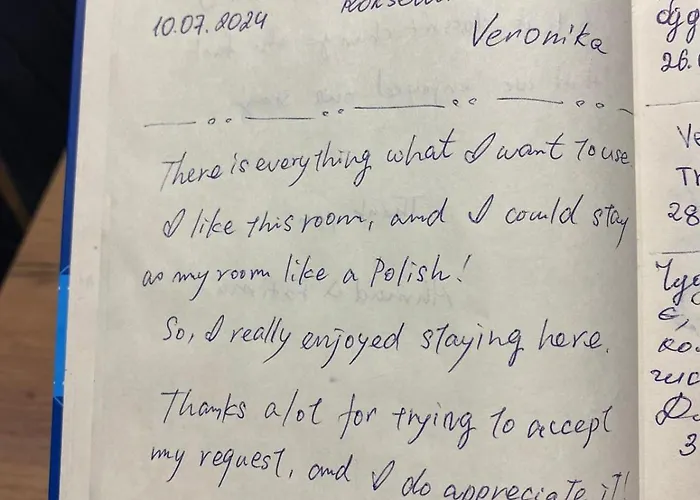 10.07.2024
Veronika
There is everything what I want to use.
I like this room, and I could stay
as my room like a Polish!
So, I really enjoyed staying here.
Thanks alot for trying to accept
my request, and I do appreciate it!!
26.
Ve
28
3